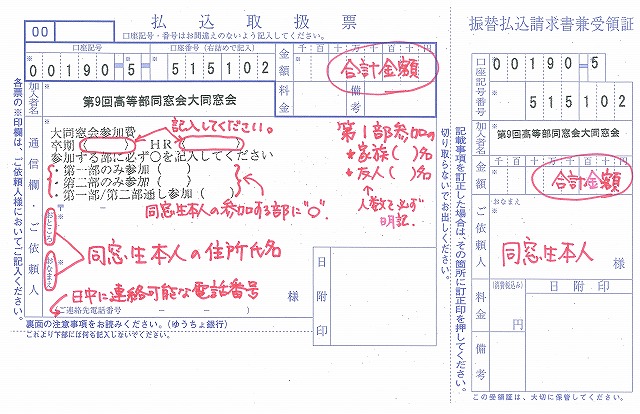 払込取扱票
00
口座記号・番号はお間違えのないよう記入してください。
口座記号
口座番号(右詰めで記入)
金額
千百十万千百十円
00190 5 515102
合計金額
加入者名
第9回高等部同窓会大同窓会
料金
備考
通信欄・ご依頼人
各票の※印欄は、ご依頼人様においてご記入ください。
大同窓会参加費
記入してください。
卒期( ) HR( )
参加する部に必ず○を記入してください
・第一部のみ参加( )
・第二部のみ参加( )
・第一部/第二部通し参加( )
第1部参加の
*家族( )名
*友人( )名
↑
人数を必ず
明記。
同窓生本人の参加する部に"○"。
〒
おところ
同窓生本人の住所氏名
おなまえ
様
日中に連絡可能な電話番号
(ご連絡先電話番号 － － )
日附印
裏面の注意事項をお読みください。(ゆうちょ銀行)
これより下部には何も記入しないでください。
切り取らないでお出しください。
記載事項を訂正した場合は、その箇所に訂正印を押してください。
振替払込請求書兼受領証
口座記号番号
00190 5
515102
加入者名
第9回高等部同窓会大同窓会
金額
千百十万千百十円
合計金額
ご依頼人
おなまえ
同窓生本人
様
料金
円
日附印
備考
この受領証は、大切に保管してください。